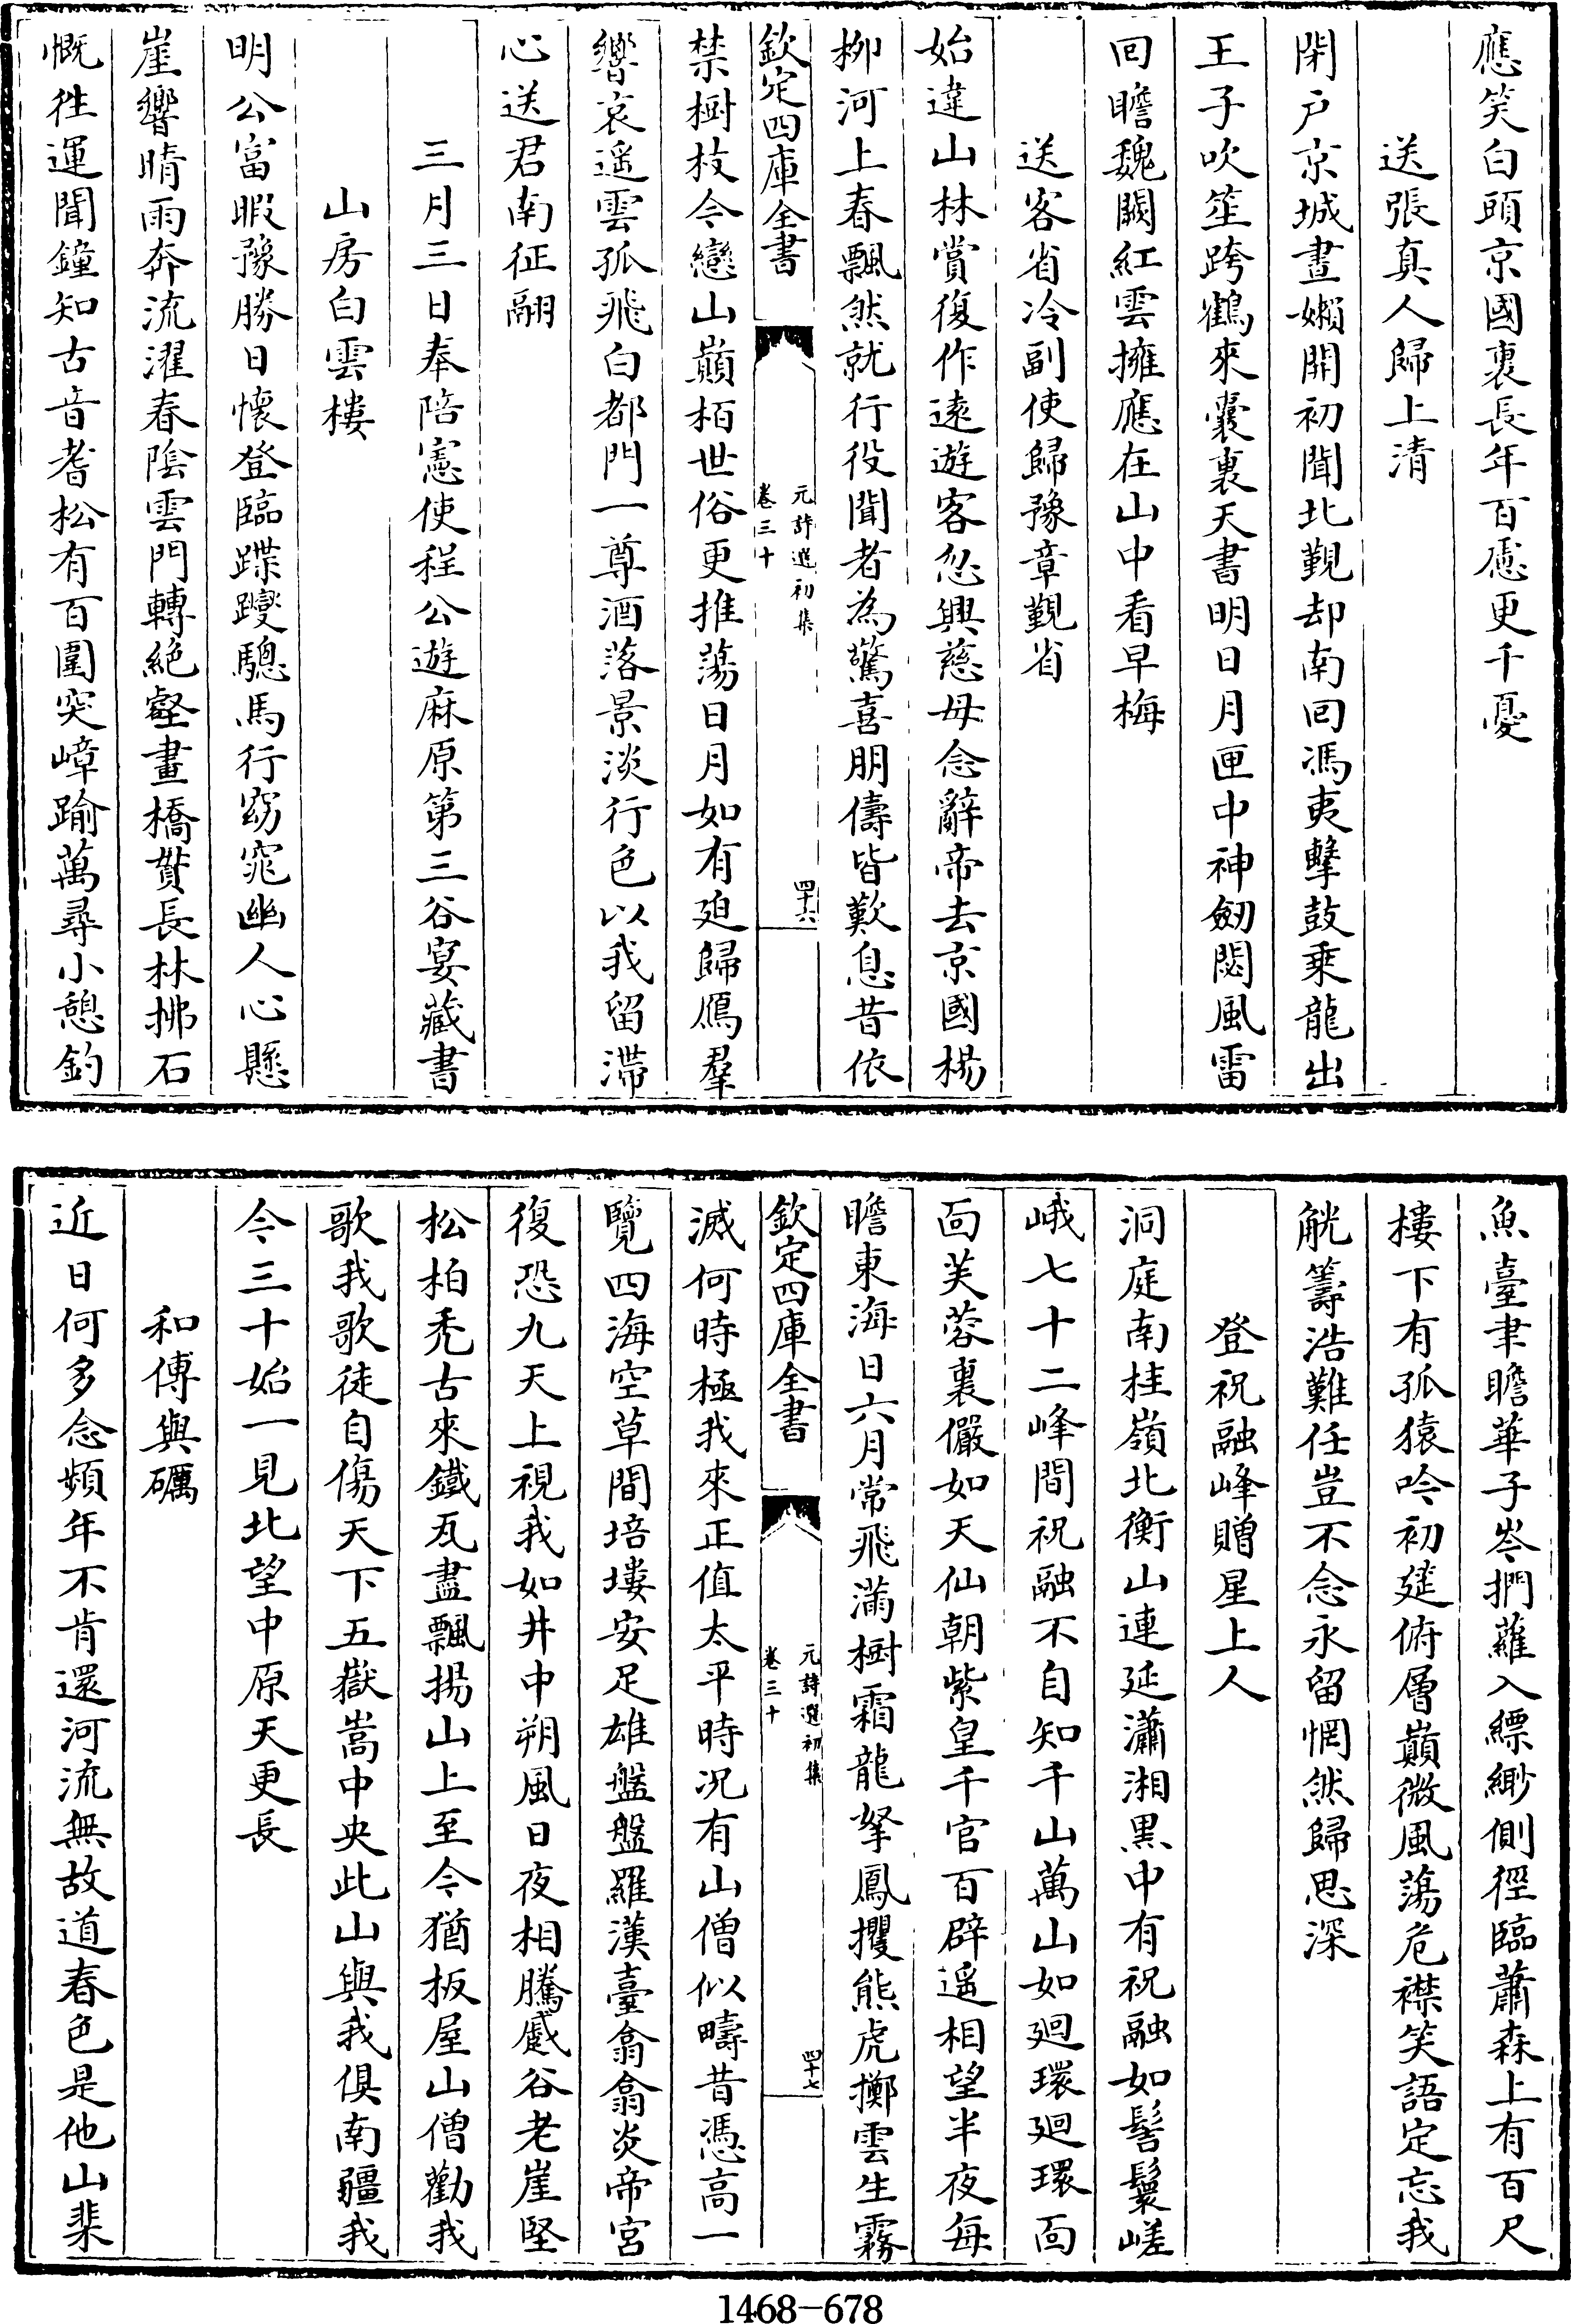 應笑白頭京國裏長年百慮更千憂
送張真人歸上清
閉户京城晝嬾開初聞北覲却南回馮夷擊鼓乘龍出
王子吹笙跨鶴來囊裏天書明日月匣中神劒閟風雷
回瞻魏闕紅雲擁應在山中看早梅
送客省冷副使歸豫章覲省
始違山林賞復作遠遊客忍興慈母念辭帝去京國楊
柳河上春飄然就行役聞者為驚喜朋儔皆歎息昔依
欽定四庫全書
元詩選初集
卷三十
四十六
禁樹枝今戀山巔栢世俗更推蕩日月如有廹歸鴈羣
響哀遥雲孤飛白都門一尊酒落景淡行色以我留滯
心送君南征翮
三月三日奉陪憲使程公遊麻原第三谷宴藏書
山房白雲樓
明公富暇豫勝日懷登臨蹀躞驄馬行窈窕幽人心懸
崖響晴雨奔流濯春陰雲門轉絶壑畫橋貫長林拂石
慨徃運聞鐘知古音耆松有百圍突嶂踰萬尋小憩釣
魚臺聿瞻華子岑捫蘿入縹緲側徑臨蕭森上有百尺
樓下有孤猿吟初筵俯層巔微風蕩危襟笑語定忘我
觥籌浩難任豈不念永留惘然歸思深
登祝融峰贈星上人
洞庭南桂嶺北衡山連延瀟湘黒中有祝融如髻鬟嵯
峨七十二峰間祝融不自知千山萬山如廻環廻環面
面芙蓉裏儼如天仙朝紫皇千官百辟遥相望半夜每
瞻東海日六月常飛滿樹霜龍拏鳳攫熊虎擲雲生霧
欽定四庫全書
元詩選初集
卷三十
四十七
滅何時極我來正值太平時况有山僧似疇昔憑高一
覽四海空草間培塿安足雄盤盤羅漢臺翕翕炎帝宮
復恐九天上視我如井中朔風日夜相騰蹙谷老崖堅
松柏秃古來鐵瓦盡飄揚山上至今猶板屋山僧勸我
歌我歌徒自傷天下五嶽嵩中央此山與我俱南疆我
今三十始一見北望中原天更長
和傅與礪
近日何多念頻年不肯還河流無故道春色是他山渠